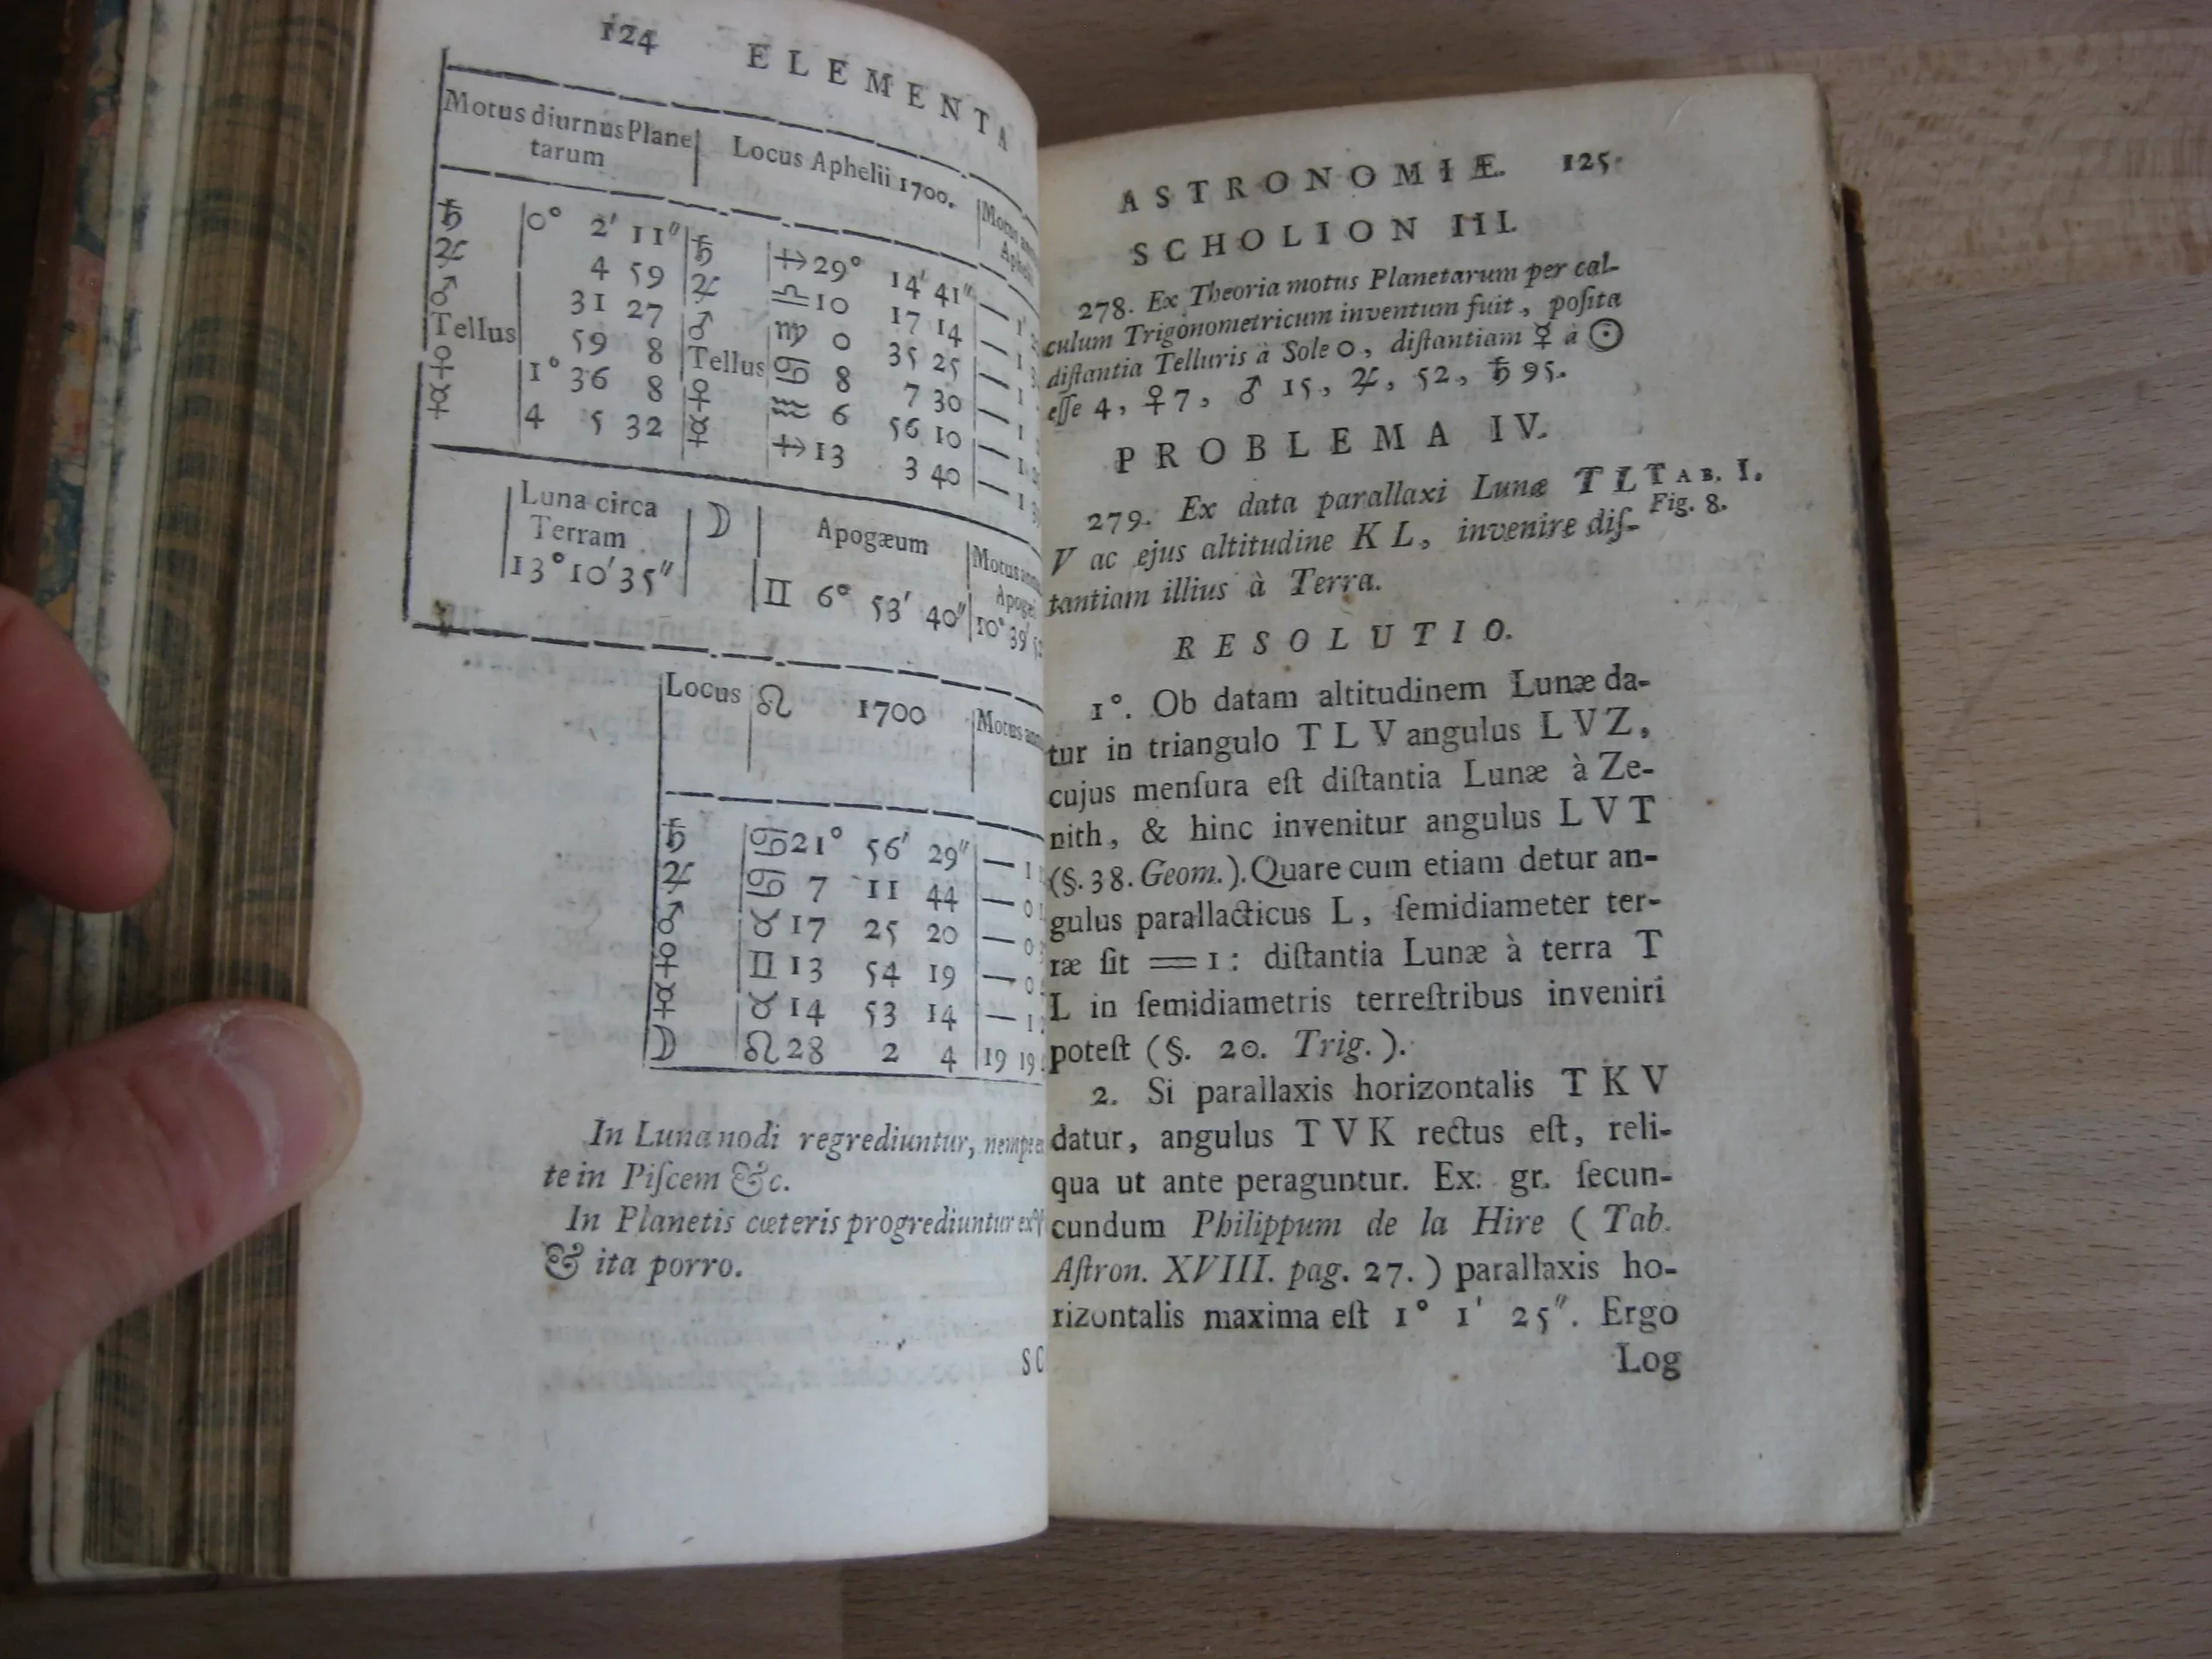 124 ELEMENTA
Motus diurnus Plane
tarum
Locus Aphelii 1700.
♄ 0° 2' 11" ♄ ♐ 29° 14' 41"
♃ 4 59 ♃ ♎ 10 17 14
♂ 31 27 ♂ ♍ 0 35 25
Tellus 59 8 Tellus ♋ 8 7 30
♀ 1° 36 8 ♀ ♒ 6 56 10
☿ 4 5 32 ☿ ♐ 13 3 40
Luna circa
Terram
13° 10' 35"
☽ Apogæum
♊ 6° 53' 40"
Motus
10° 39'
Locus ☊ 1700 Motus
♄ ♋ 21° 56' 29"
♃ ♋ 7 11 44
♂ ♉ 17 25 20
♀ ♊ 13 54 19
☿ ♉ 14 53 14
☽ ♌ 28 2 4 19 19
In Luna nodi regrediuntur, nempe
te in Piſcem &c.
In Planetis cæteris progrediuntur ex
& ita porro.
SC
ASTRONOMIÆ. 125.
SCHOLION III.
278. Ex Theoria motus Planetarum per cal-
culum Trigonometricum inventum fuit, poſita
diſtantia Telluris à Sole 0, diſtantiam ☿ à ☉
eſſe 4, ♀ 7, ♂ 15, ♃, 52, ♄ 95.
PROBLEMA IV.
279. Ex data parallaxi Lunæ T L
V ac ejus altitudine K L, invenire diſ-
tantiam illius à Terra.
TAB. I.
Fig. 8.
RESOLUTIO.
1°. Ob datam altitudinem Lunæ da-
tur in triangulo T L V angulus L V Z,
cujus menſura eſt diſtantia Lunæ à Ze-
nith, & hinc invenitur angulus L V T
(§. 38. Geom.). Quare cum etiam detur an-
gulus parallacticus L, ſemidiameter ter-
ræ ſit = 1: diſtantia Lunæ à terra T
L in ſemidiametris terreſtribus inveniri
poteſt (§. 20. Trig.).
2. Si parallaxis horizontalis T K V
datur, angulus T V K rectus eſt, reli-
qua ut ante peraguntur. Ex. gr. ſecun-
cundum Philippum de la Hire (Tab.
Aſtron. XVIII. pag. 27.) parallaxis ho-
rizontalis maxima eſt 1° 1' 25". Ergo
Log